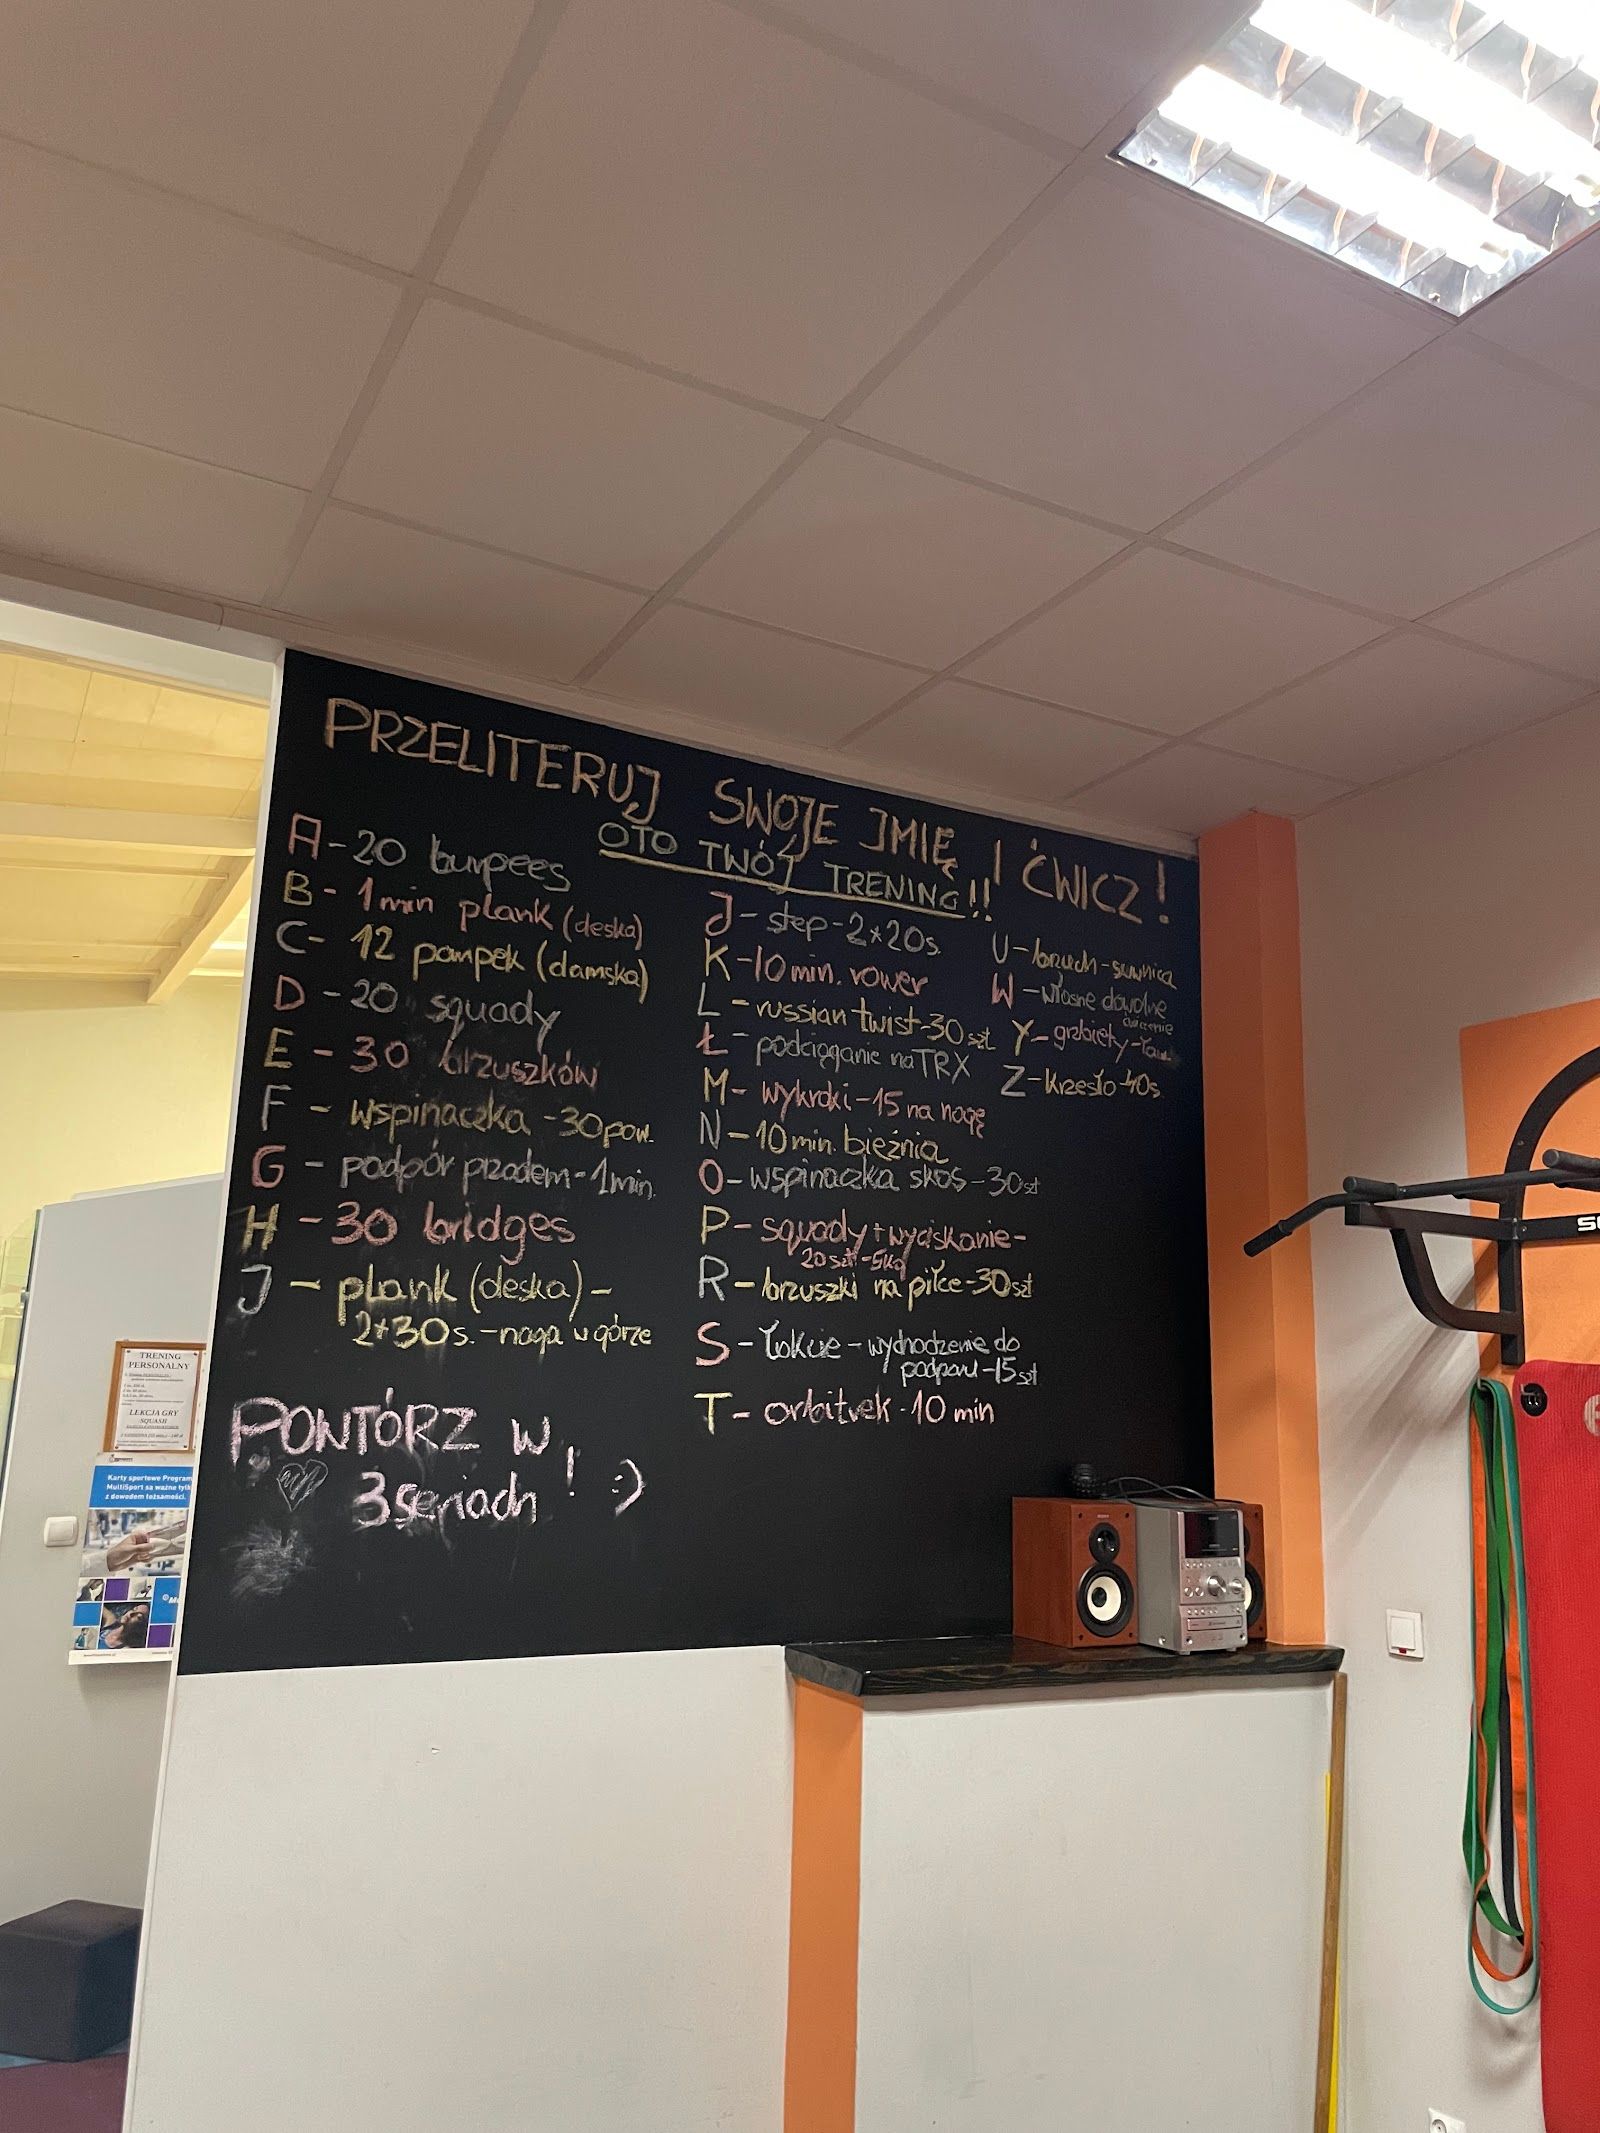 PRZELITERUJ SWOJE IMIĘ I ĆWICZ!
OTO TWÓJ TRENING!!
A - 20 burpees
B - 1 min plank (deska)
C - 12 pompek (damska)
D - 20 squady
E - 30 brzuszków
F - wspinaczka - 30 pow.
G - podpór przodem - 1 min.
H - 30 bridges
J - plank (deska) -
2*30s. - noga w górze
PONTÓRZ W
3 seriach ! :)
J - step - 2*20s.
K - 10 min. rower
L - russian twist - 30 szt
Ł - podciąganie na TRX
M - wykroki - 15 na nogę
N - 10 min. bieżnia
O - wspinaczka skos - 30 szt
P - squady + wyciskanie -
20 szt - 5kg
R - brzuszki na piłce - 30 szt
S - łokcie - wychodzenie do
podporu - 15 szt
T - orbitrek - 10 min
U - brzuch - suwnica
W - własne dowolne
ćwiczenie
Y - grzbiety
Z - krzesło 40s.
TRENING
PERSONALNY
LEKCJA GRY
SQUASH
Karty sportowe Program
MultiSport są ważne tylk
z dowodem tożsamości.
SONY